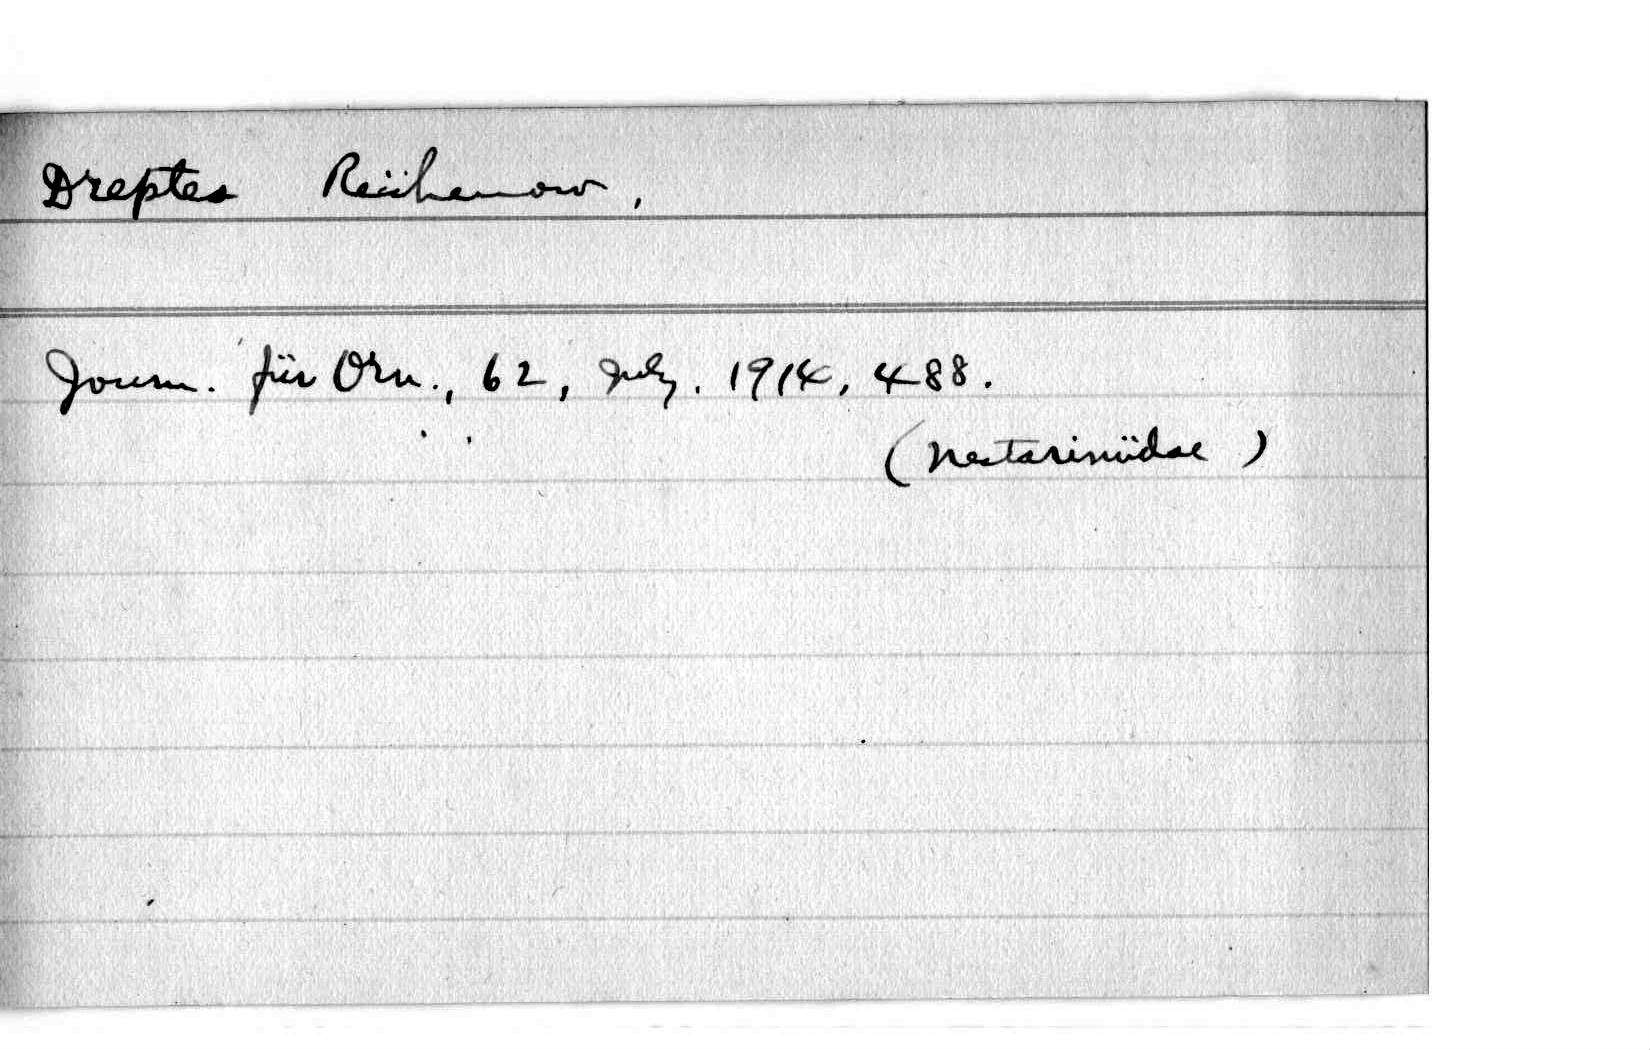 Dreptes Reichenow,
Journ. für Orn., 62, July. 1914, 488.
(Nectariniidae)